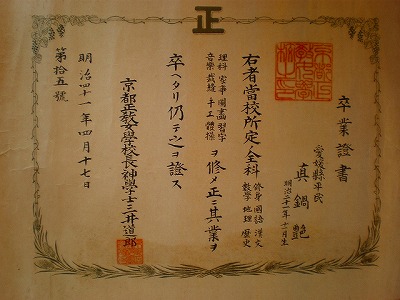 正
卒業證書
愛媛縣平民
真鍋艶
明治二十一年十二月生
右者當校所定ノ全科
修身 國語 漢文
數學 地理 歷史
理科 家事 圖畫 習字
音樂 裁縫 手工 體操
ヲ修メ正ニ其業ヲ
卒ヘタリ仍テ之ヲ證ス
京都正教女學校長神學士三井道郎
明治四十一年四月十七日
第拾五號